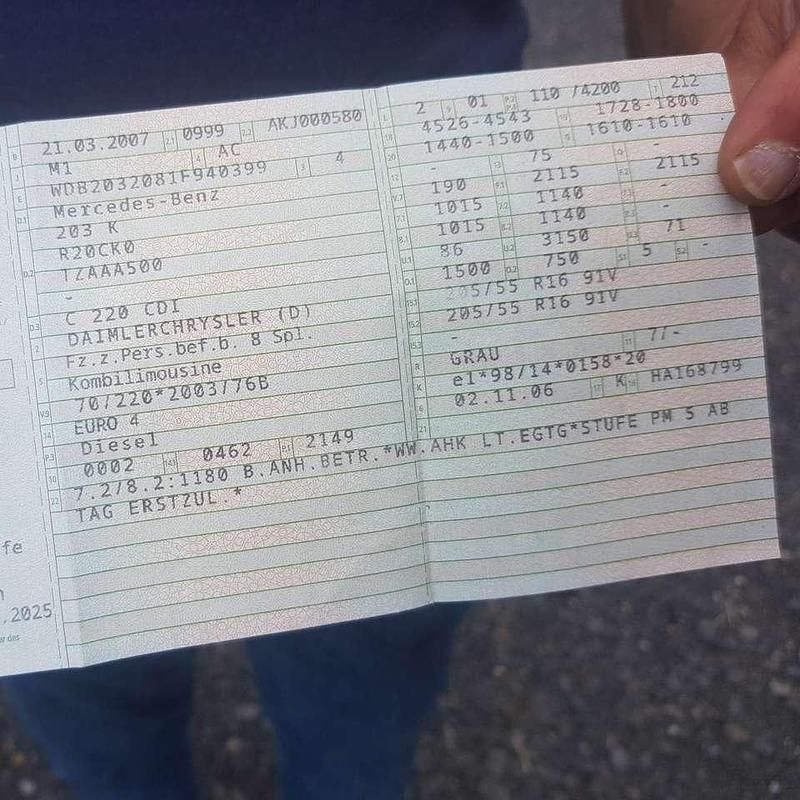 21.03.2007 0999 AKJ000580
M1 AC
WDB2032081F940399 4
Mercedes-Benz
203 K
R20CK0
TZAAA500
-
C 220 CDI
DAIMLERCHRYSLER (D)
Fz.z.Pers.bef.b. 8 Spl.
Kombilimousine
70/220*2003/76B
EURO 4
Diesel
0002 0462 2149
7.2/8.2:1180 B.ANH.BETR.*WW.AHK LT.EGTG*STUFE PM 5 AB
TAG ERSTZUL.*
2 01 110 /4200 212
4526-4543 1728-1800
1440-1500 1610-1610
- 75 -
190 2115 2115
1015 1140 -
1015 1140 -
86 3150 71
1500 750 5 -
205/55 R16 91V
205/55 R16 91V
-
GRAU 7/-
e1*98/14*0158*20
02.11.06 K HA168799
fe
.2025